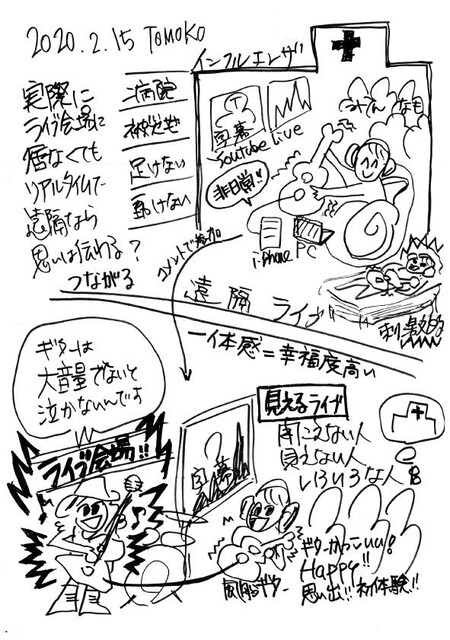 2020.2.15 TOMOKO
インフルエンザ
実際に
ライブ会場に
居なくても
リアルタイムで
遠隔なら
思いは伝わる？
つながる
病院
被災地
行けない
動けない
字幕
Youtube Live
みんなも
非日常!!
i-Phone
PC
コメントで参加
遠隔ライブ
一体感＝幸福度高い
ギターは
大音量でないと
泣かないんです
ライブ会場!!
字幕
見えるライブ
聞こえない人
見えない人
いろいろな人
ギターかっこいい!
Happy!!
思い出!! 初体験!!